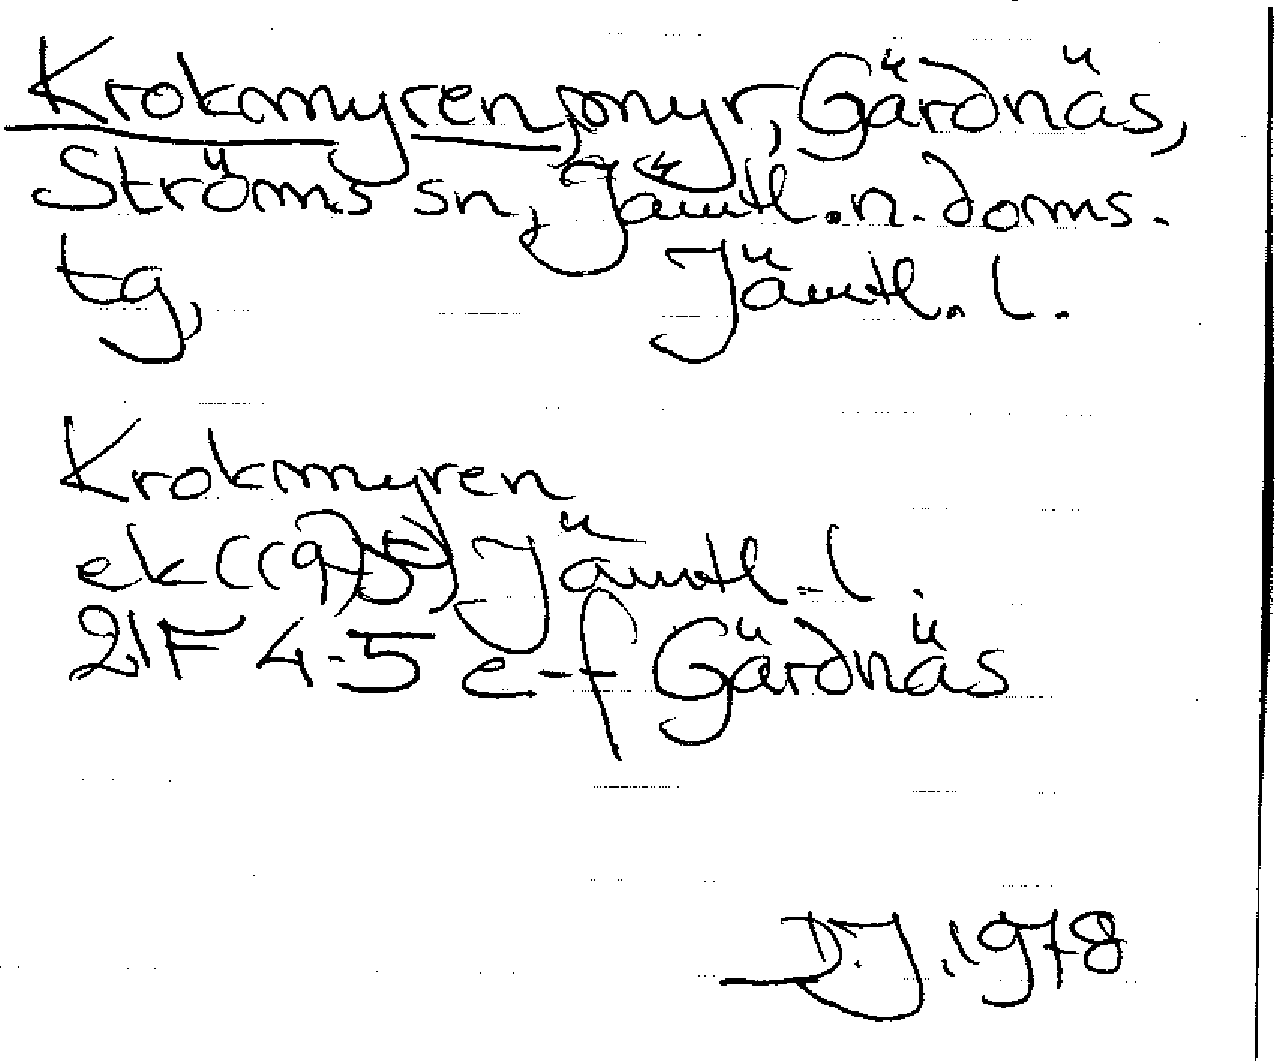 Krokmyren, myr, Gärdnäs,
Ströms sn, Jämtl. n. doms.
tg, Jämtl. l.
Krokmyren
ek ((9)5) Jämtl. l.
21F 4-5 e-f Gärdnäs
D.J. 1978